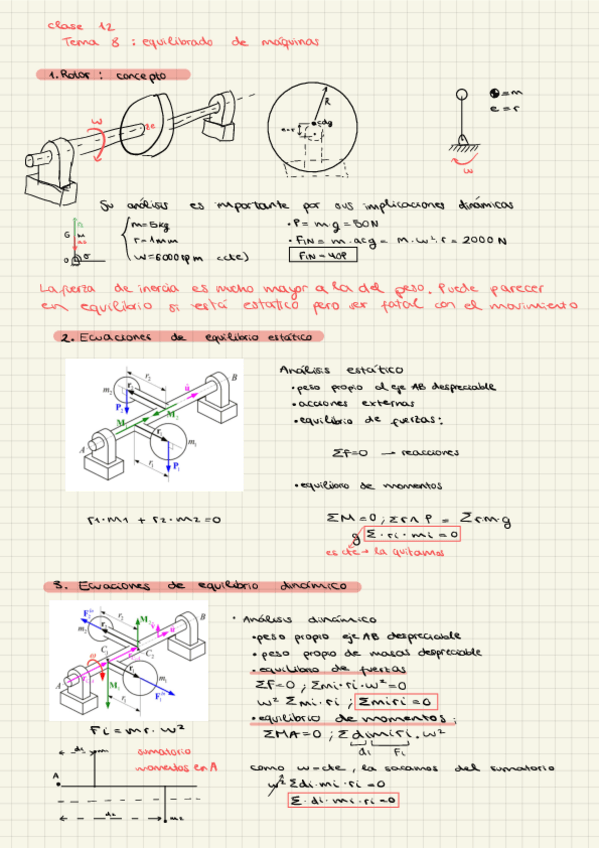 clase 12
Tema 8 : equilibrado de máquinas
1. Rotor : concepto
ω
R
cdg
e=r
=m
e=r
ω
Su análisis es importante por sus implicaciones dinámicas
m=5kg
r=1mm
ω=6000rpm cte)
G
m
O
• P= m·g = 50N
• FIN = m·acg = m·ω²·r = 2000N
FIN=40P
La fuerza de inercia es mucho mayor a la del peso. Puede parecer
en equilibrio si está estático pero ser fatal con el movimiento
2. Ecuaciones de equilibrio estático
m₂
r₂
r₂
P₂
M₁
M₂
u
B
A
r₁
m₁
r₁
P₁
Análisis estático
• peso propio del eje AB despreciable
• acciones externas
• equilibrio de fuerzas:
ΣF=0 → reacciones
• equilibrio de momentos
r1·m1 + r2·m2=0
ΣM=0; Σr∧P = Σr·m·g
g Σ·ri·mi=0
es cte → la quitamos
3. Ecuaciones de equilibrio dinámico
m₂
r₂
M
u
B
C₂
C₁
ω
A
M
r₁
m₁
• Análisis dinámico
• peso propio eje AB despreciable
• peso propio de masas despreciable
• equilibrio de fuerzas
ΣF=0 ; Σmi·ri·ω²=0
ω² Σmi·ri ; Σmiri=0
• equilibrio de momentos:
ΣMA=0 ; Σdimiri·ω²
di Fi
Fi=mr·ω²
sumatorio
momentos en A
d1
m1
A
d2
m2
como ω=cte, la sacamos del sumatorio
ω² Σdi·mi·ri=0
Σ·di·mi·ri=0